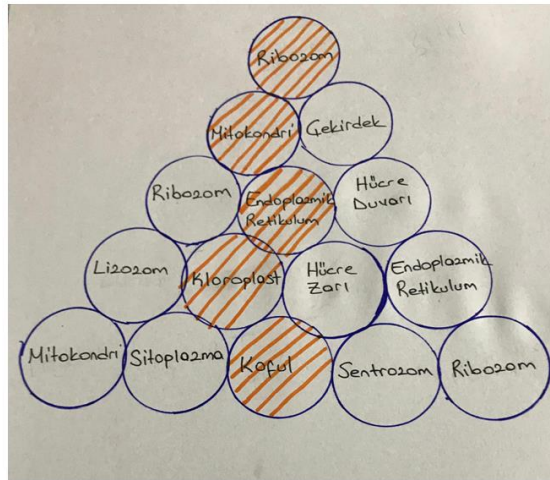 Ribozom
Mitokondri Çekirdek
Ribozom Endoplazmik Retikulum Hücre Duvarı
Lizozom Kloroplast Hücre Zarı Endoplazmik Retikulum
Mitokondri Sitoplazma Koful Sentrozom Ribozom